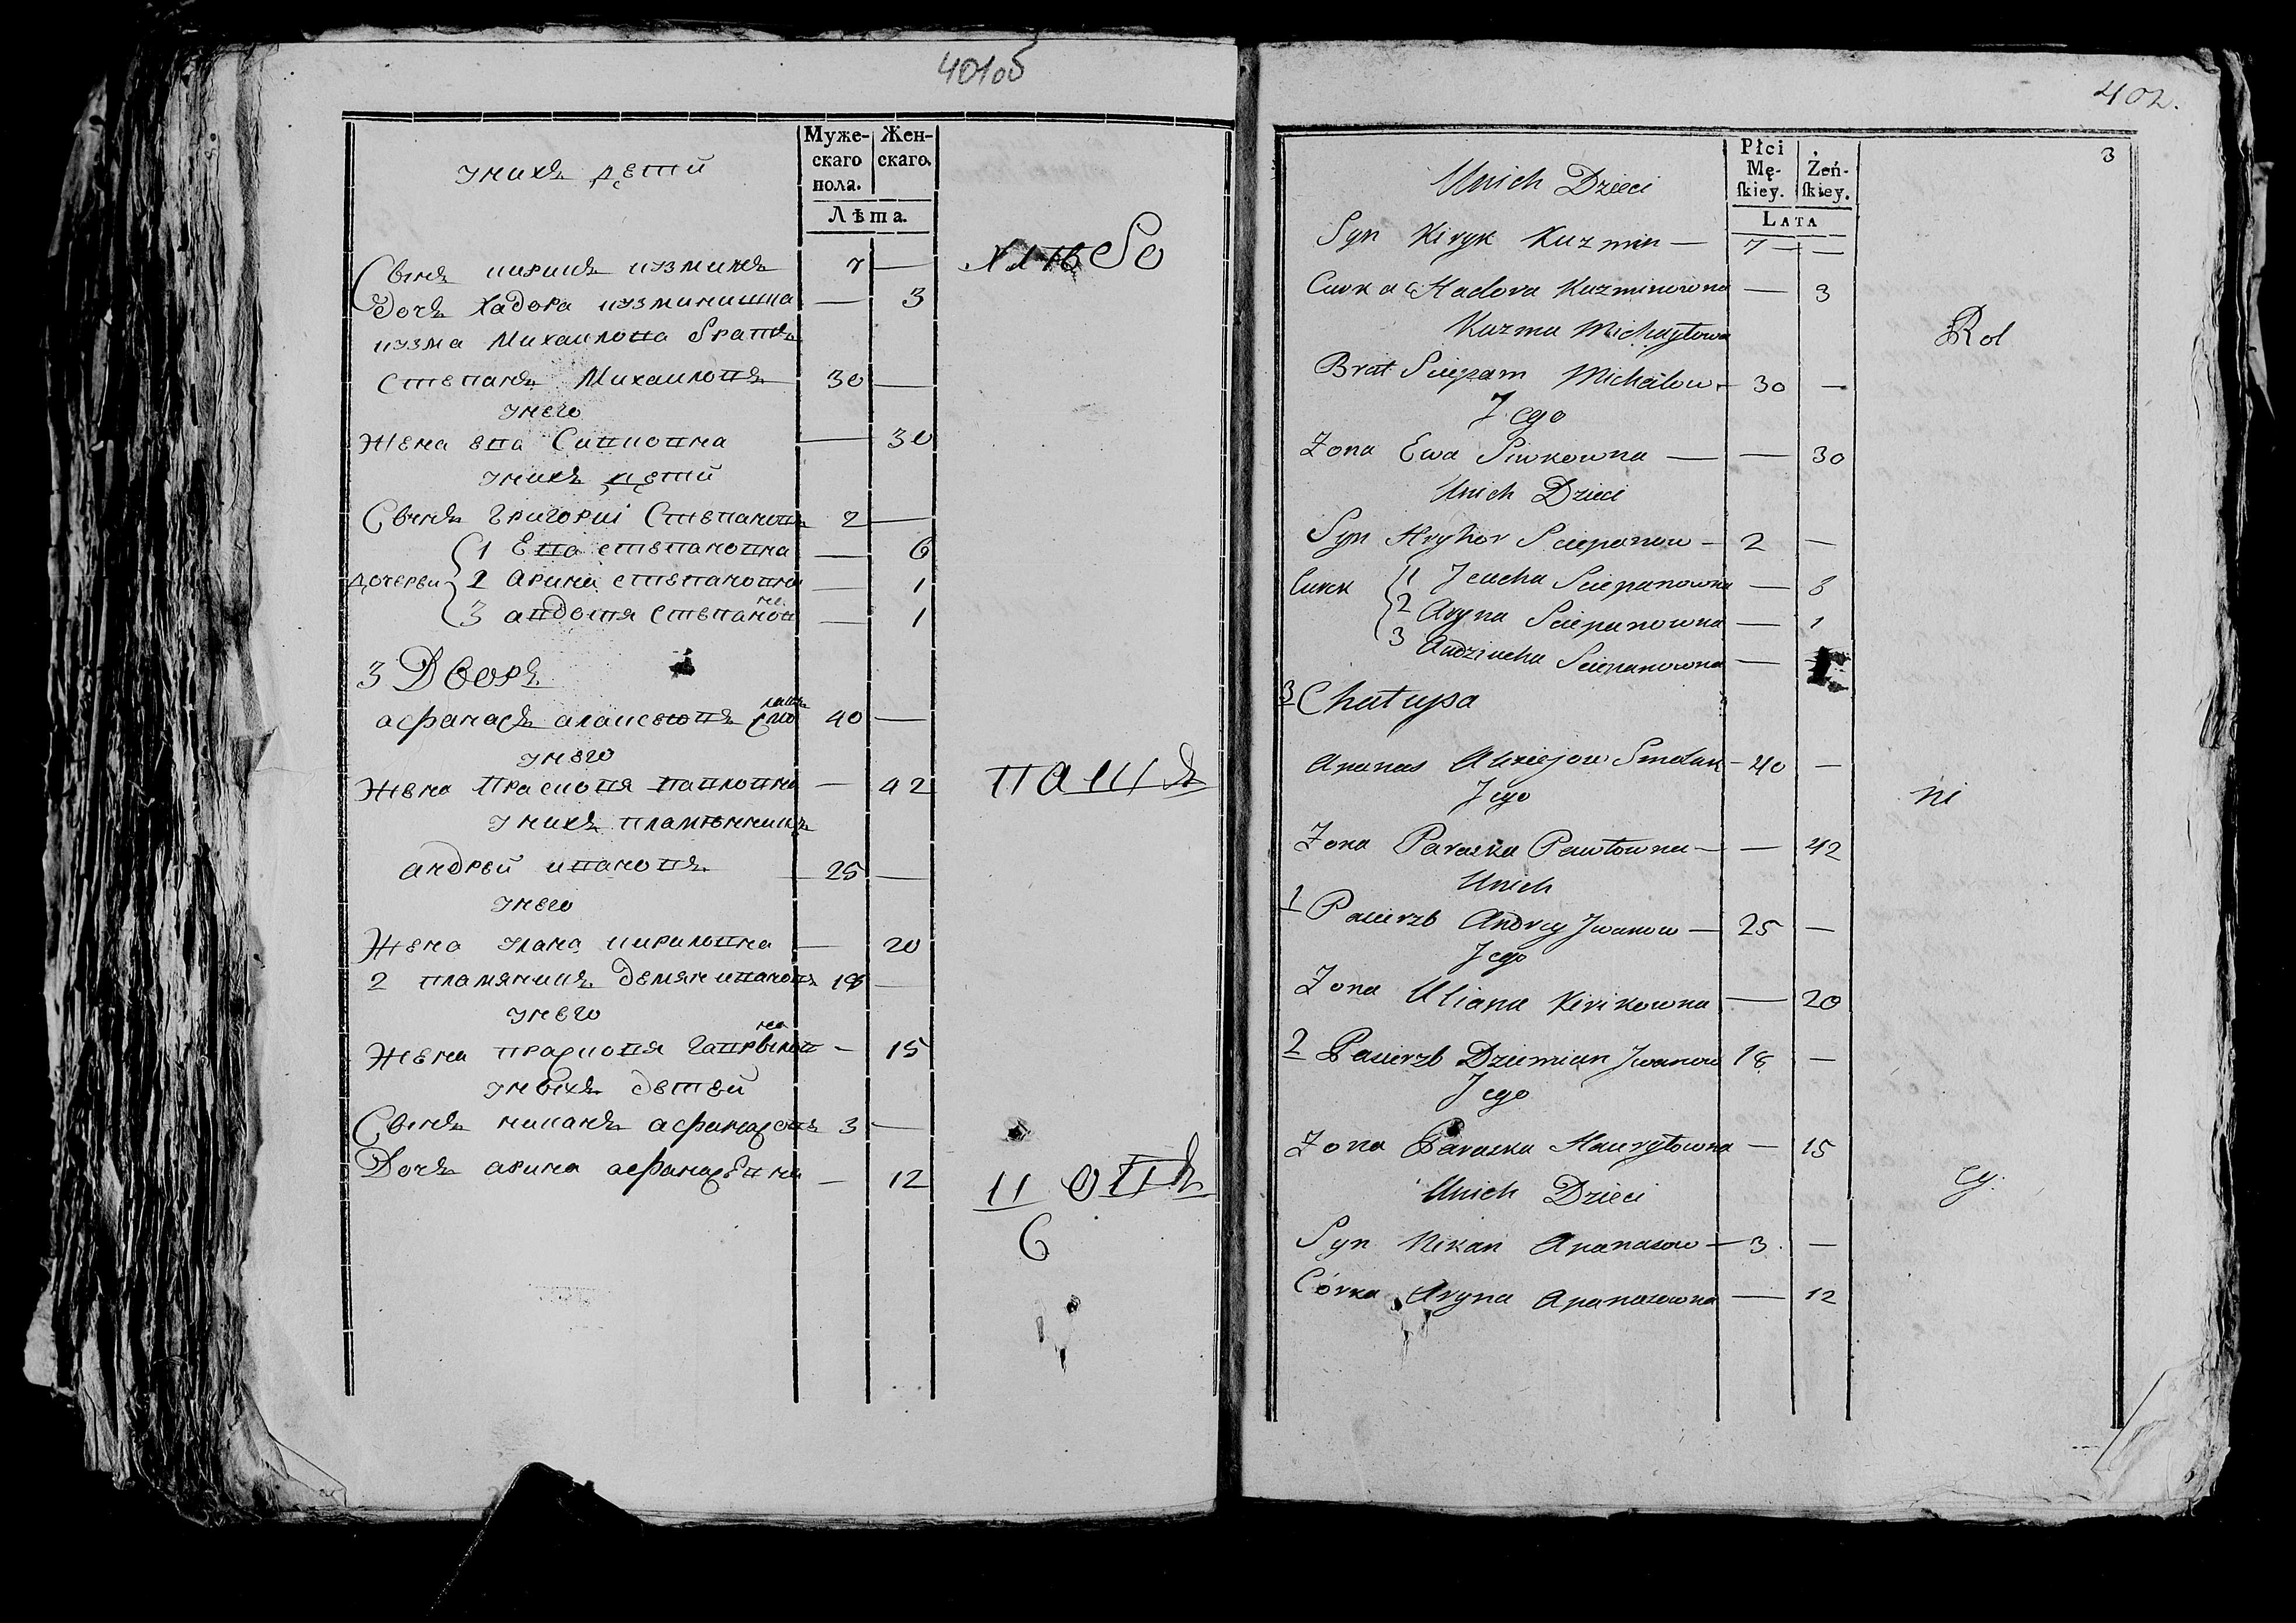 401об
унихъ детй
Муже-
скаго
пола.
Жен-
скаго.
Лѣта.
Сынъ кирикъ кузминъ 7 —
дочъ хадора кузминишна — 3
кузма Михаилова братъ
степанъ Михаиловъ 30 —
унего
жена ева Сивковна — 30
унихъ детй
Сынъ григориі Степановъ 2 —
1 Ева степановна — 6
дочерви 2 арина степановна — 1
3 авдотя степановна — 1
3 Дворъ
афанасъ алаксеювъ 40 —
унего
жена Прасковя павловна — 42
унихъ пламѣнникъ
андрей ивановъ 25 —
унего
жена улана кириловна — 20
2 пламяникъ демян ивановъ 18 —
унего
жена прасковя гаврыловна — 15
уныхъ детей
Сынъ никанъ афанасовъ 3 —
Дочъ арина афанасевна — 12
хлѣбо
пащъ
ковъ
6
402.
3
Unich Dzieci
Płci
Mę-
ſkiey.
Żeń-
ſkiey.
LATA
Syn Kiryk Kuzmin — 7 —
Curka Hadora Kuzminowna — 3
Kuzma Michayłowa
Brat Sciepam Michalow — 30 —
Jego
Zona Ewa Siwkowna — — 30
Unich Dzieci
Syn Hryhor Sciepanow — 2 —
Curk 1 Jeucha Sciepanowna — 6
2 Aryna Sciepanowna — 1
3 Audziucha Sciepanowna — 1
3 Chatupa
Apanas Alexiejow Smolak — 40 —
Jego
Zona Paraska Pawłowna — — 42
Unich
1 Pasierzb Andrey Jwanow — 25 —
Jego
Zona Uliana Kirikowna — 20
2 Pasierzb Dziemian Jwanow 18 —
Jego
Zona Paraska Hauryłowna — 15
Unich Dzieci
Syn Nikan Apanasow — 3 —
Córka Aryna Apanasowna — 12
Rol
ni
cy.